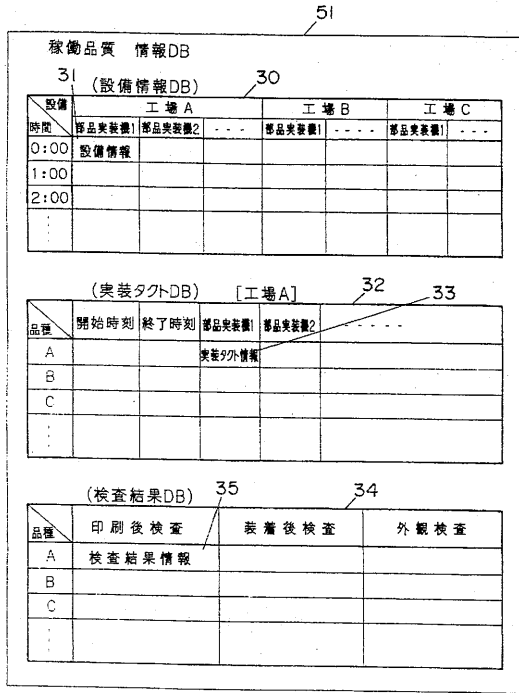 51
稼働品質 情報DB
31 (設備情報DB) 30
設備 工場A 工場B 工場C
時間 部品実装機1 部品実装機2 --- 部品実装機1 ---- 部品実装機1 ---
0:00 設備情報
1:00
2:00
(実装タクトDB) [工場A] 32 33
品種 開始時刻 終了時刻 部品実装機1 部品実装機2 -----
A 実装タクト情報
B
C
(検査結果DB) 35 34
品種 印刷後検査 装着後検査 外観検査
A 検査結果情報
B
C